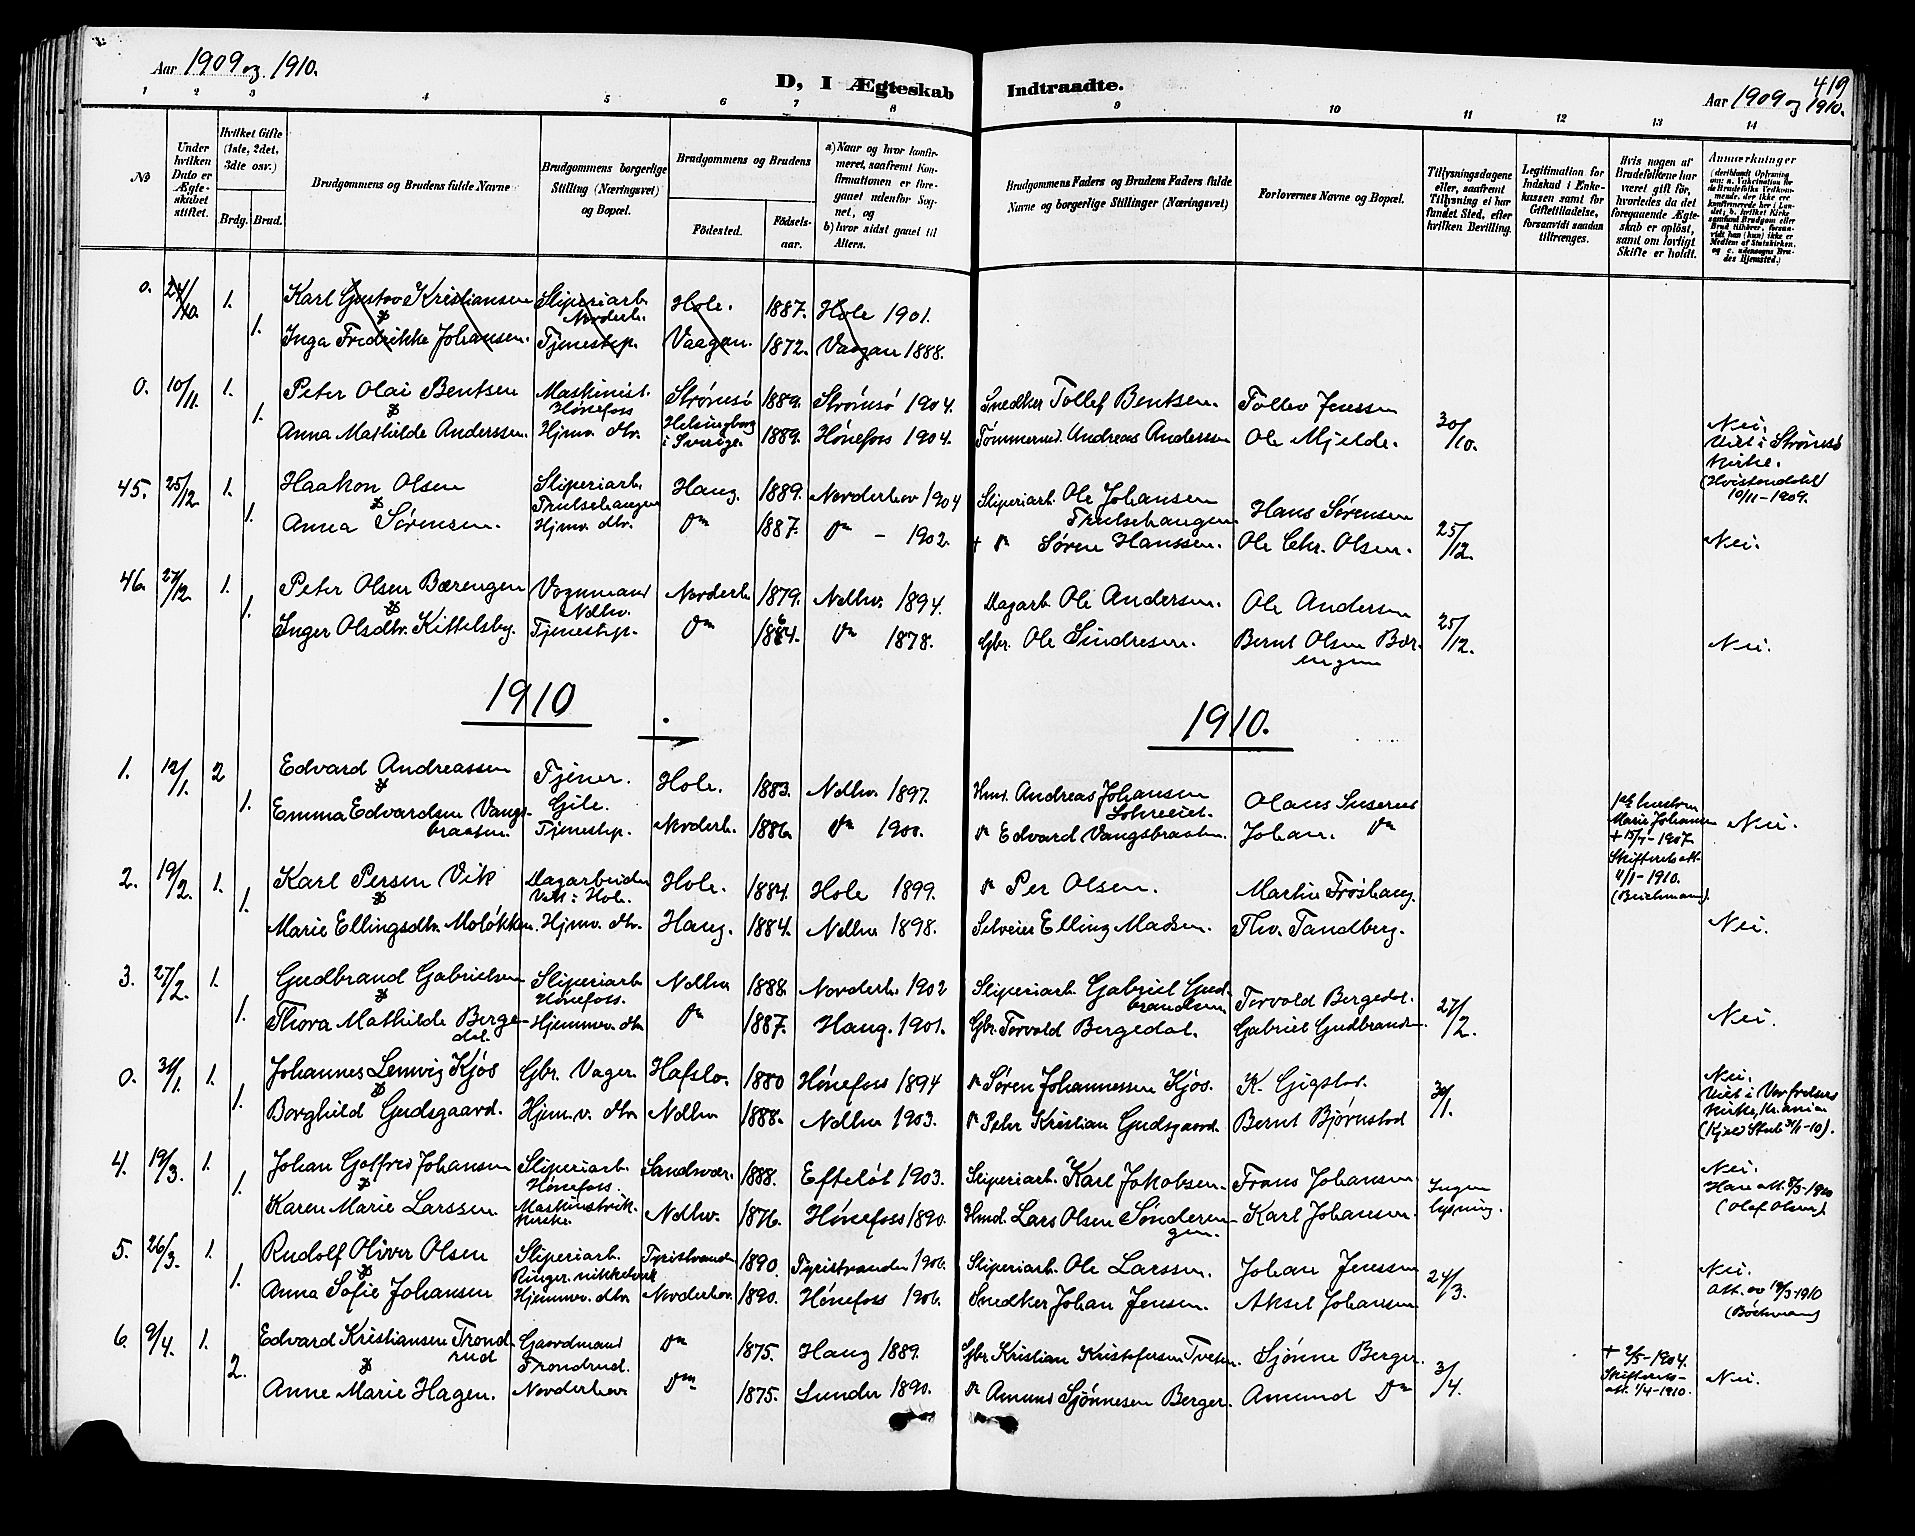 Aar 1909 og 1910.
D, I Ægteskab Indtraadte.
419
Aar 1909 og 1910.
1 2 3 4 5 6 7 8 9 10 11 12 13 14
No
Under hvilken Dato er Ægteskabet stiftet.
Hvilket Gifte (1ste, 2det, 3die osv.)
Brdg. Brud.
Brudgommens og Brudens fulde Navne
Brudgommens borgerlige Stilling (Næringsvei) og Bopæl.
Brudgommens og Brudens
Födested.
Födsels-aar.
a) Naar og hvor konfirmeret, saafremt Konfirmationen er foregaaet udenfor Sognet, og
b) hvor sidst gaaet til Alters.
Brudgommens Faders og Brudens Faders fulde Navne og borgerlige Stillinger (Næringsvei)
Forlovernes Navne og Bopæl.
Tillysningsdagene eller, saafremt Tillysning ei har fundet Sted, efter hvilken Bevilling.
Legitimation for Indskud i Enkekassen samt for Giftetilladelse, forsaavidt saadan tiltrænges.
Hvis nogen af Brudefolkene har været gift før, hvorledes da det foregaaende Ægteskab er oplöst, samt om lovligt Skifte er holdt.
Anmærkninger
0. 24/10. 1. Karl Gustav Kristiansen Sliperiarb. Norderh. Hole. 1887. Hole 1901.
&
1. Inga Fredrikke Johansen. Tjenestep. Vaagan. 1872. Vaagan 1888.
0. 10/11. 1. Peter Olai Bentsen Maskinist. Hönefoss Strömsö 1889. Strömsö 1904. Snedker Tollef Bentsen. Tollev Jenssen
&
1. Anna Mathilde Anderssen. Hjmv. dtr. Helsingborg i Sverige. 1889. Hönefoss 1904. Tømmermd. Andreas Anderssen Ole Mjelde. 30/10. Nei. Viet i Strömsö Kirke. (Hvistendahl) 10/11-1909.
45. 25/12 1. Haakon Olsen Sliperiarb. Trulsehaugen Haug. 1889. Norderhov 1904 Sliperiarb. Ole Johansen Trulsehaugen Hans Sørensen
&
1. Anna Sørensen. Hjmv. dtr. Do 1887. Do - 1902. + Do Søren Hanssen. Ole Chr. Olsen. 25/12. Nei.
46. 27/12. 1. Peter Olsen Bærengen Vognmand Ndhv. Norderh. 1879. Ndhv. 1894. Dagarb. Ole Andersen. Ole Andersen
&
1. Inger Olsdtr. Kittelsby. Tjenestep. Do 1884. Do 1878. Gbr. Ole Sindresen. Bernt Olsen Bærengen 25/12. Nei.
1910 1910.
1. 12/1. 2 Edvard Andreassen Tjener. Gile. Hole. 1883. Ndhv. 1897. Hmd. Andreas Johansen Olaus
&
1. Emma Edvardsen Vangsbraaten. Tjenestep. Norderh. 1886. Do 1900. Do Edvard Vangsbraaten. Johan. Do Marie Johansen + 15/7-1907. Skifteretsatt. 4/1-1910. Nei.
2. 19/2. 1. Karl Persen Vik Dagarbeider Vik i Hole. Hole. 1884. Hole 1899. Do Per Olsen. Martin Frøshaug.
&
1. Marie Ellingsdtr. Moløkken. Hjmv. dtr. Haug. 1884. Ndhv 1898. Selveier Elling Madsen. Thv. Tandberg. Nei.
3. 27/2. 1. Gudbrand Gabrielsen Sliperiarb. Hönefoss. Ndhv 1888. Norderh. 1902 Sliperiarb. Gabriel Gudbrandsen Torvald Bergedal.
&
1. Thora Mathilde Bergedal. Hjemmev. dtr Do 1887. Haug. 1901. Gbr. Torvald Bergedal. Gabriel Gudbrandsen 27/2. Nei.
0. 31/1. 1. Johannes Lemvig Kjös Gbr. Vager. Hafslo. 1880 Hönefoss 1894 Do Søren Johannessen Kjøs. K. Gigstad.
&
1. Borghild Gudsgaard. Hjm.v. dtr. Ndhv 1888. Ndhv 1903. Do Peter Kristian Gudsgaard. Bernt Bjørnstad 30/1. Nei. Viet i Vor frelsers Kirke, Kr.ania (Kjeld Stub 31/1-10).
4. 19/3. 1. Johan Gotfred Johansen Sliperiarb. Hönefoss. Sandsvær. 1888. Efteløt 1903. Sliperiarb. Karl Jakobsen. Frans Johansen
&
1. Karen Marie Larssen. Maskinstrikkerske. Ndhv. 1876. Hönefoss 1890. Hmd. Lars Olsen Sønderengen. Karl Johansen. Ingen lysning. Nei. Hans att. 8/3-1910 (Olaf Olsen)
5. 26/3. 1. Rudolf Oliver Olsen Sliperiarb. Ringer. nikkelverk Tyristranden 1890. Tyristranden 1906. Sliperiarb. Ole Larssen. Johan Jenssen
&
1. Anna Sofie Johansen Hjemmev. dtr. Norderhov. 1890. Hönefoss 1906. Snedker Johan Jensen. Aksel Johansen 24/3. Nei. Att. av 19/3-1910 (Böckman)
6. 9/4. 1. Edvard Kristiansen Trondrud Gaardmand Trondrud. Do 1875. Haug 1889. Gbr. Kristian Kristofersen Tveten. Sjønne Berger.
&
2. Anne Marie Hagen. Norderhov Do 1875. Lunder 1890. Do Amund Sjønnesen Berger. Amund Do 3/4. + 2/5-1904. Skifterets-att. 1/4-1910. Nei.